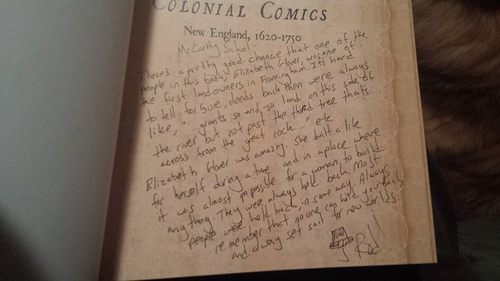 COLONIAL COMICS
New England, 1620-1750
McCarthy School!
There's a pretty good chance that one of the
people in this book, Elizabeth Glover, was one of
the first landowners in Framingham. It's hard
to tell for sure, deeds back then were always
like, "grants so-and-so land on this side of
the river but not past the third tree that's
across from the great rock..." etc
Elizabeth Glover was amazing. She built a life
for herself during a time and in a place where
it was almost impossible for a woman to build
anything. They were always held back. Most
people were held back in some way. Always
remember that no one can hold you back,
and always set sail for new worlds.